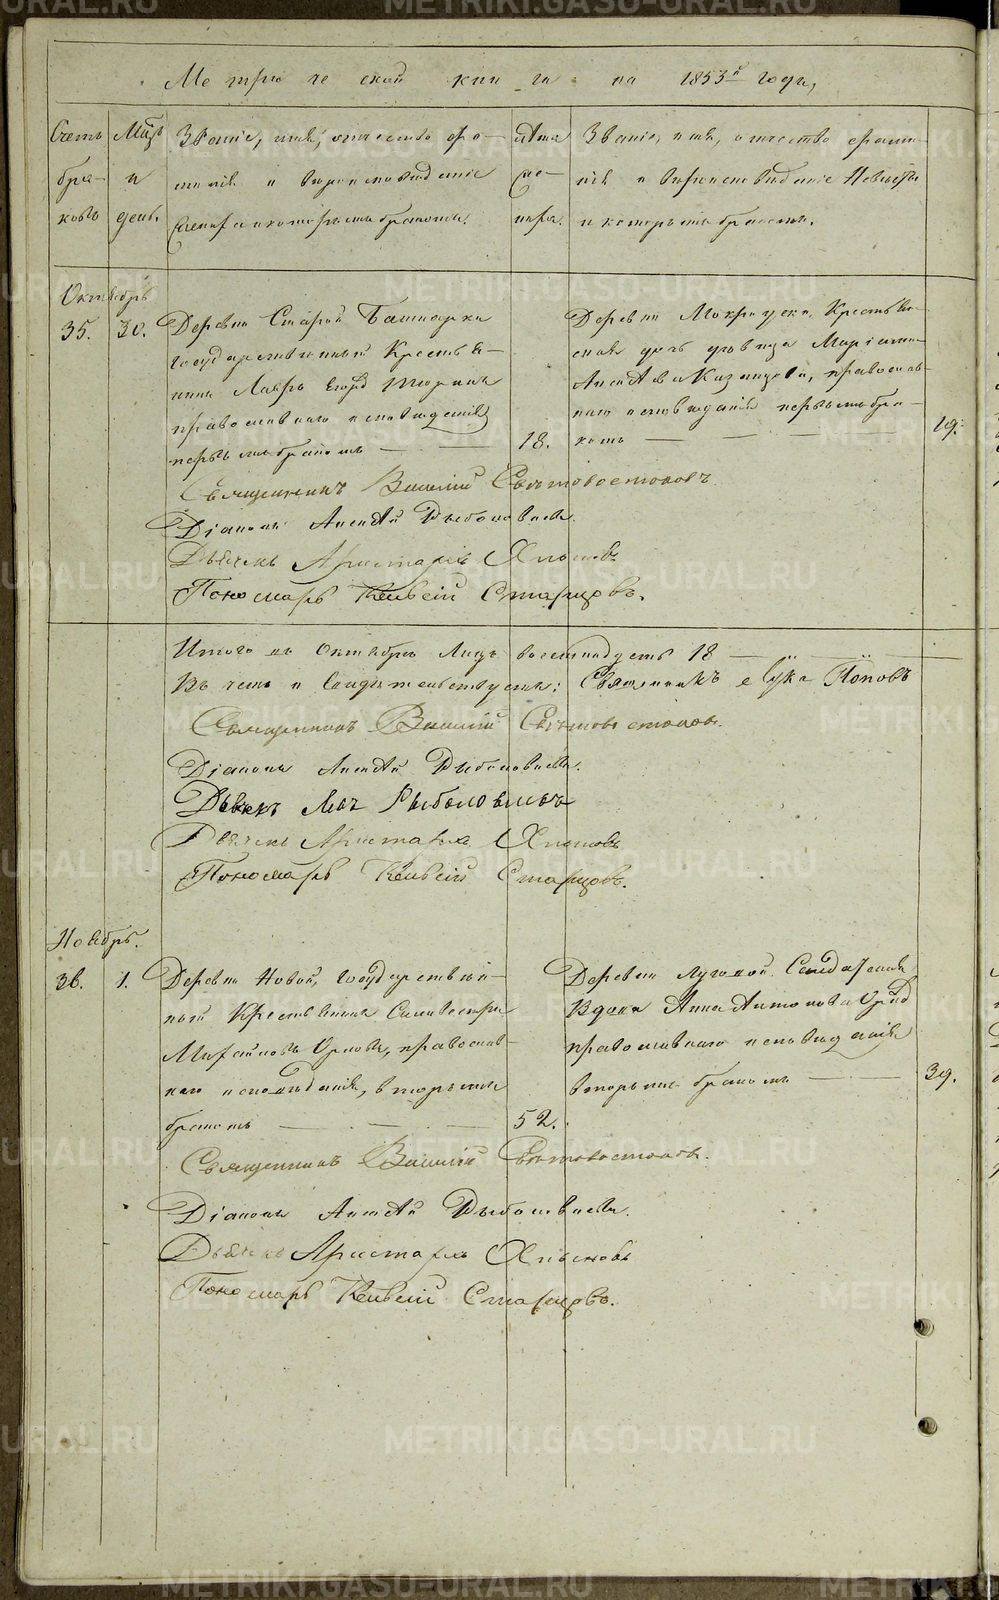 Метрической книги на 1853й годъ,
Счетъ браковъ
Мѣсяцъ и день.
Званіе, имя, отчество, фамилія и вѣроисповѣданіе Жениха и которымъ бракомъ.
лѣта женіха.
Званіе, имя, отчество, фамилія и вѣроисповѣданіе Невѣсты и которымъ бракомъ.
Октябрь
35. 30.
Деревни Старой Башкарки
государственный Крестья-
нинъ Лавръ Егоровъ
православнаго исповѣданія
первымъ бракомъ
18.
Деревни Мокроуски, Крестьян-
ская дочь дѣвица Маріамна
православ-
наго исповѣданія первымъ бра-
комъ
19.
Священникъ Василій Свѣтовостоковъ.
Діаконъ Алексѣй Рыболовлевъ.
Дьячекъ Аристархъ
Пономарь Евсевій Старцовъ.
Итого въ Октябрѣ Лицъ восемнадцать 18
Въ чемъ и Свидѣтельствуемъ: Священникъ Лука Поповъ
Священникъ Василій Свѣтовостоковъ.
Діаконъ Алексѣй Рыболовлевъ.
Дьячекъ Рыболовлевъ
Дьячекъ Аристархъ
Пономарь Евсевій Старцовъ.
Ноябрь.
36. 1.
Деревни Новой, государствен-
ный Крестьянинъ Селиверстръ
православ-
наго исповѣданія, вторымъ
бракомъ
52.
Деревни Луговой Солдатская
Вдова Анна Антонова
православнаго исповѣданія
вторымъ бракомъ
39.
Священникъ Василій Свѣтовостоковъ.
Діаконъ Алексѣй Рыболовлевъ.
Дьячекъ Аристархъ
Пономарь Евсевій Старцовъ.
METRIKI.GASO-URAL.RU